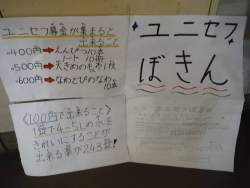 ユニセフ募金が集まると
出来ること
400円➡えんぴつ10本
ノート10冊
500円➡大きめのもうふ1枚
600円➡なわとびのなわ
10本
<100円で出来ること>
1錠で4~5Lの水を
きれいにすることが
出来る薬が243錠!
ユニセフ
ぼきん